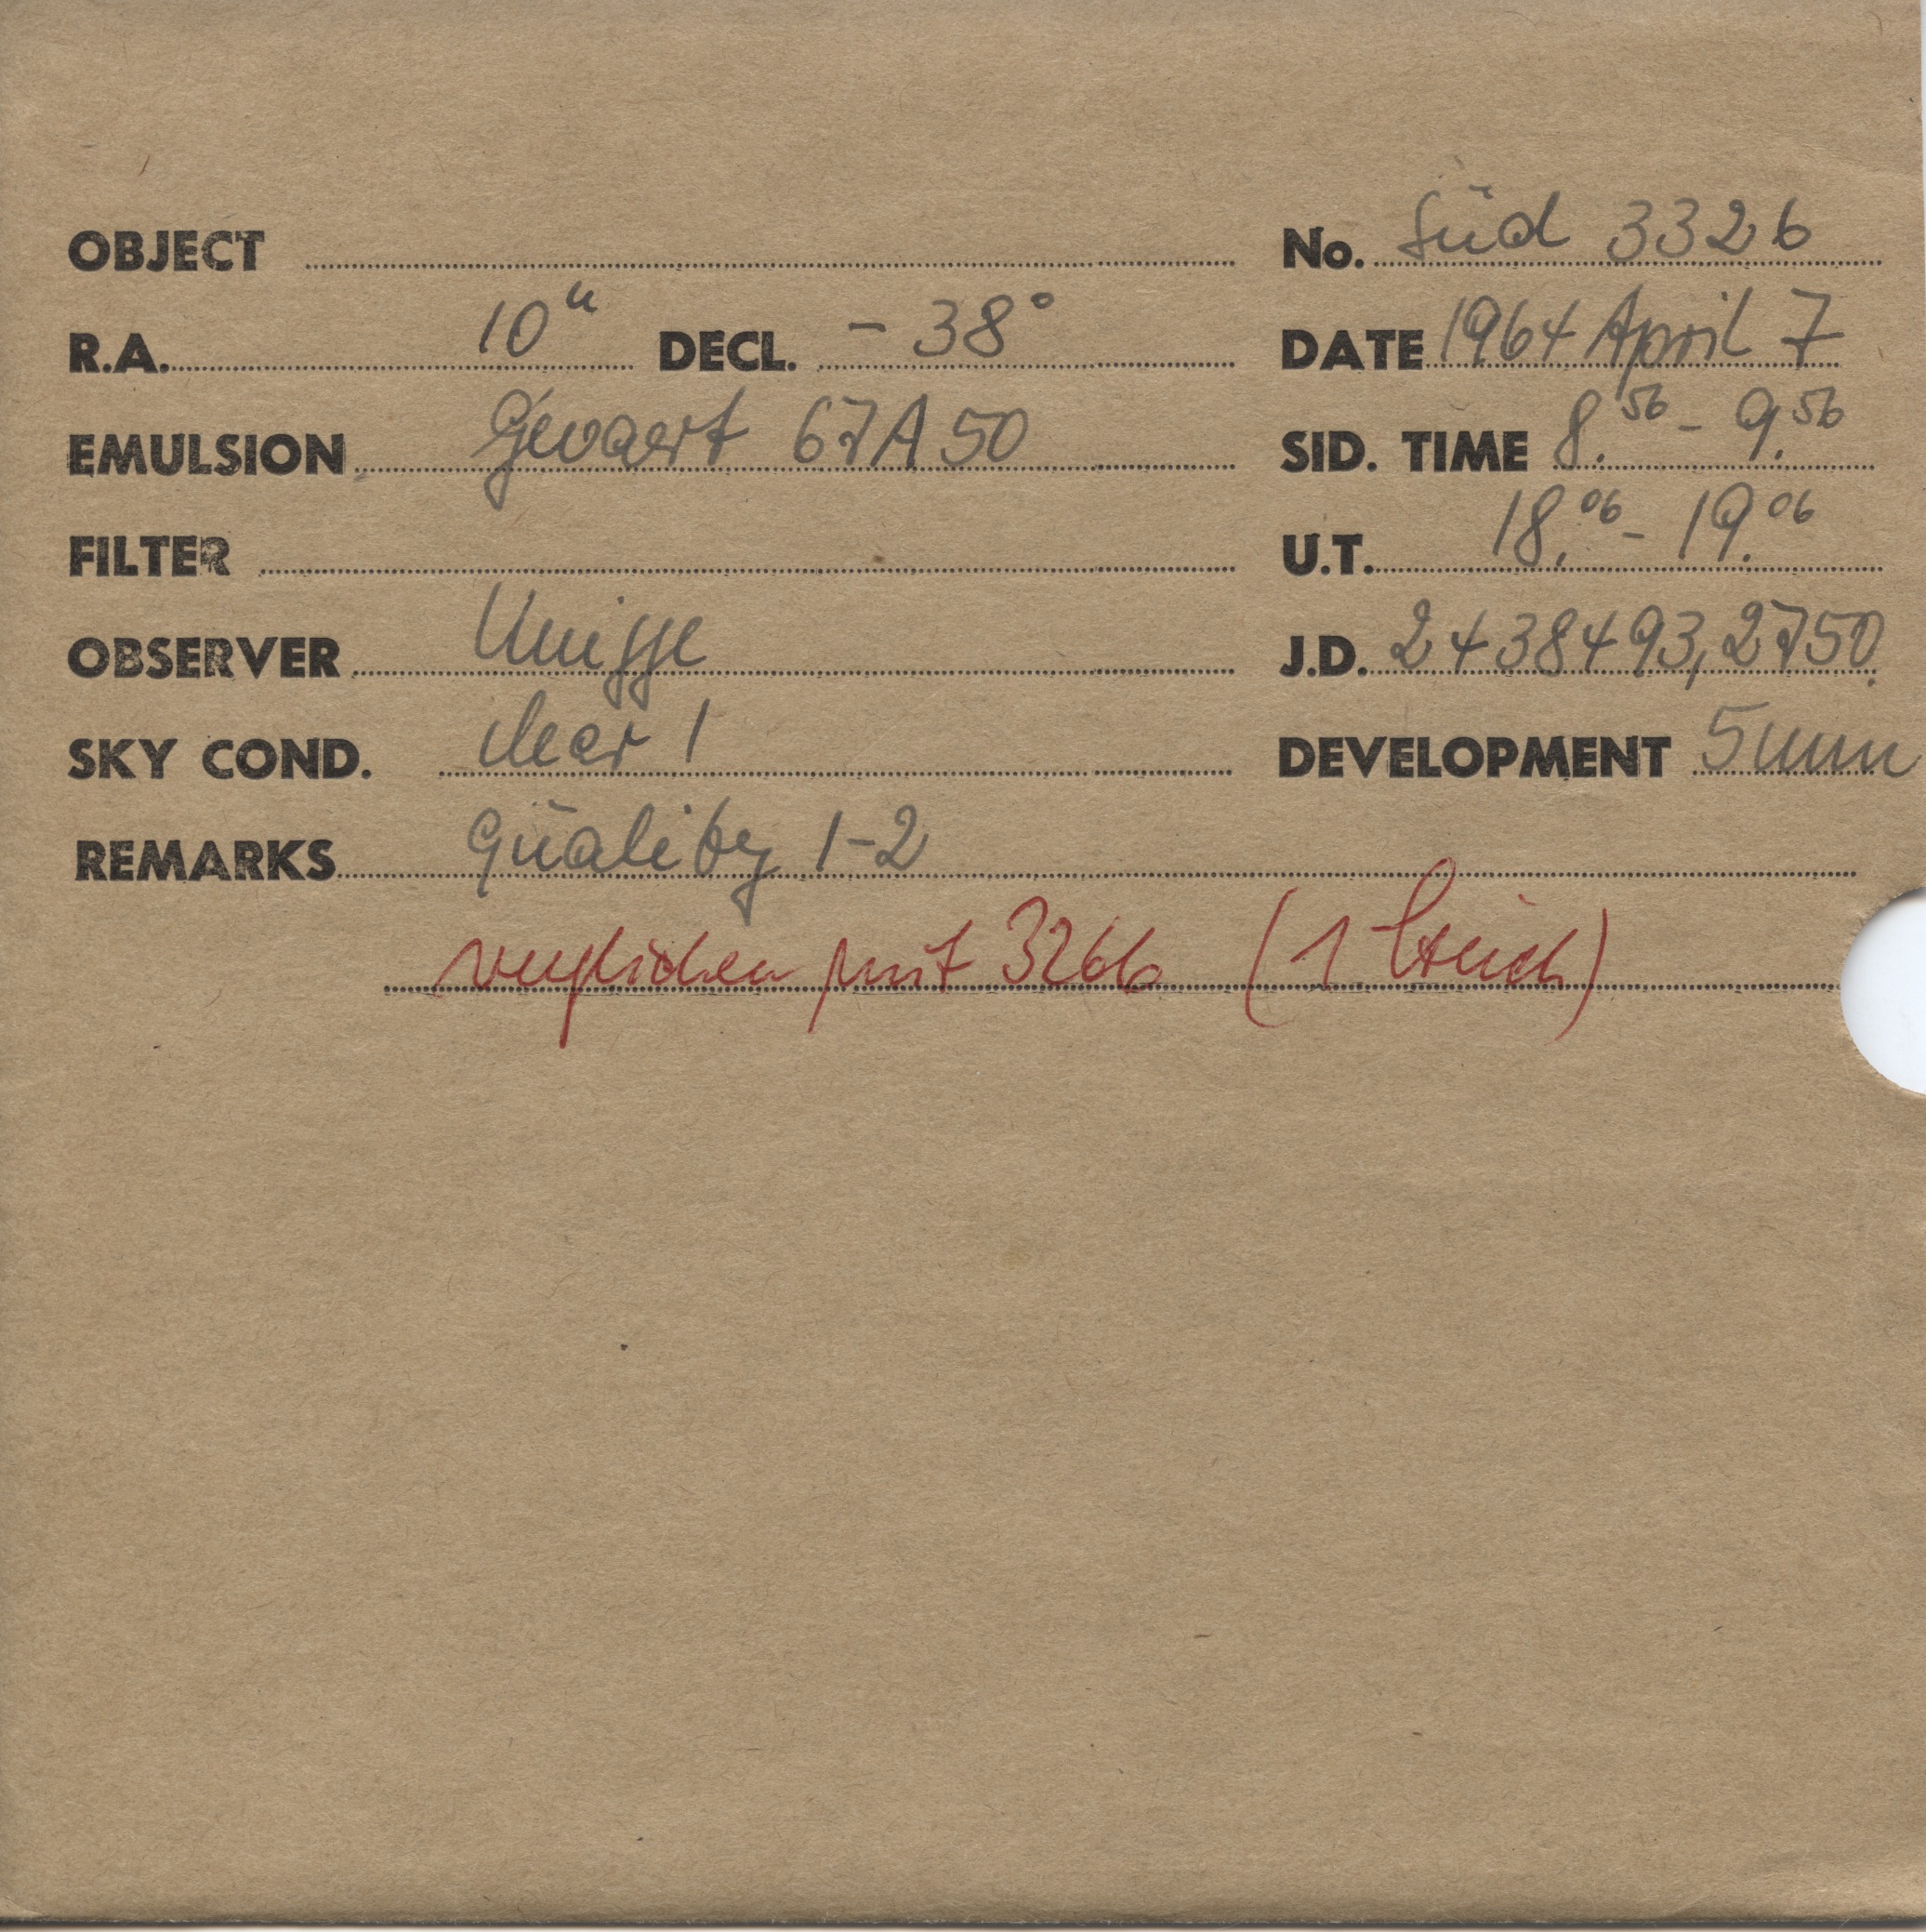 OBJECT No. Süd 3326
R.A. 10ʰ DECL. - 38° DATE 1964 April 7
EMULSION Gevaert 67A50 SID. TIME 8.⁵⁶ - 9.⁵⁶
FILTER U.T. 18.⁰⁶ - 19.⁰⁶
OBSERVER J.D. 2438493,2750
SKY COND. clear 1 DEVELOPMENT 5 min
REMARKS Quality 1-2
verglichen mit 3266 (1 Strich)